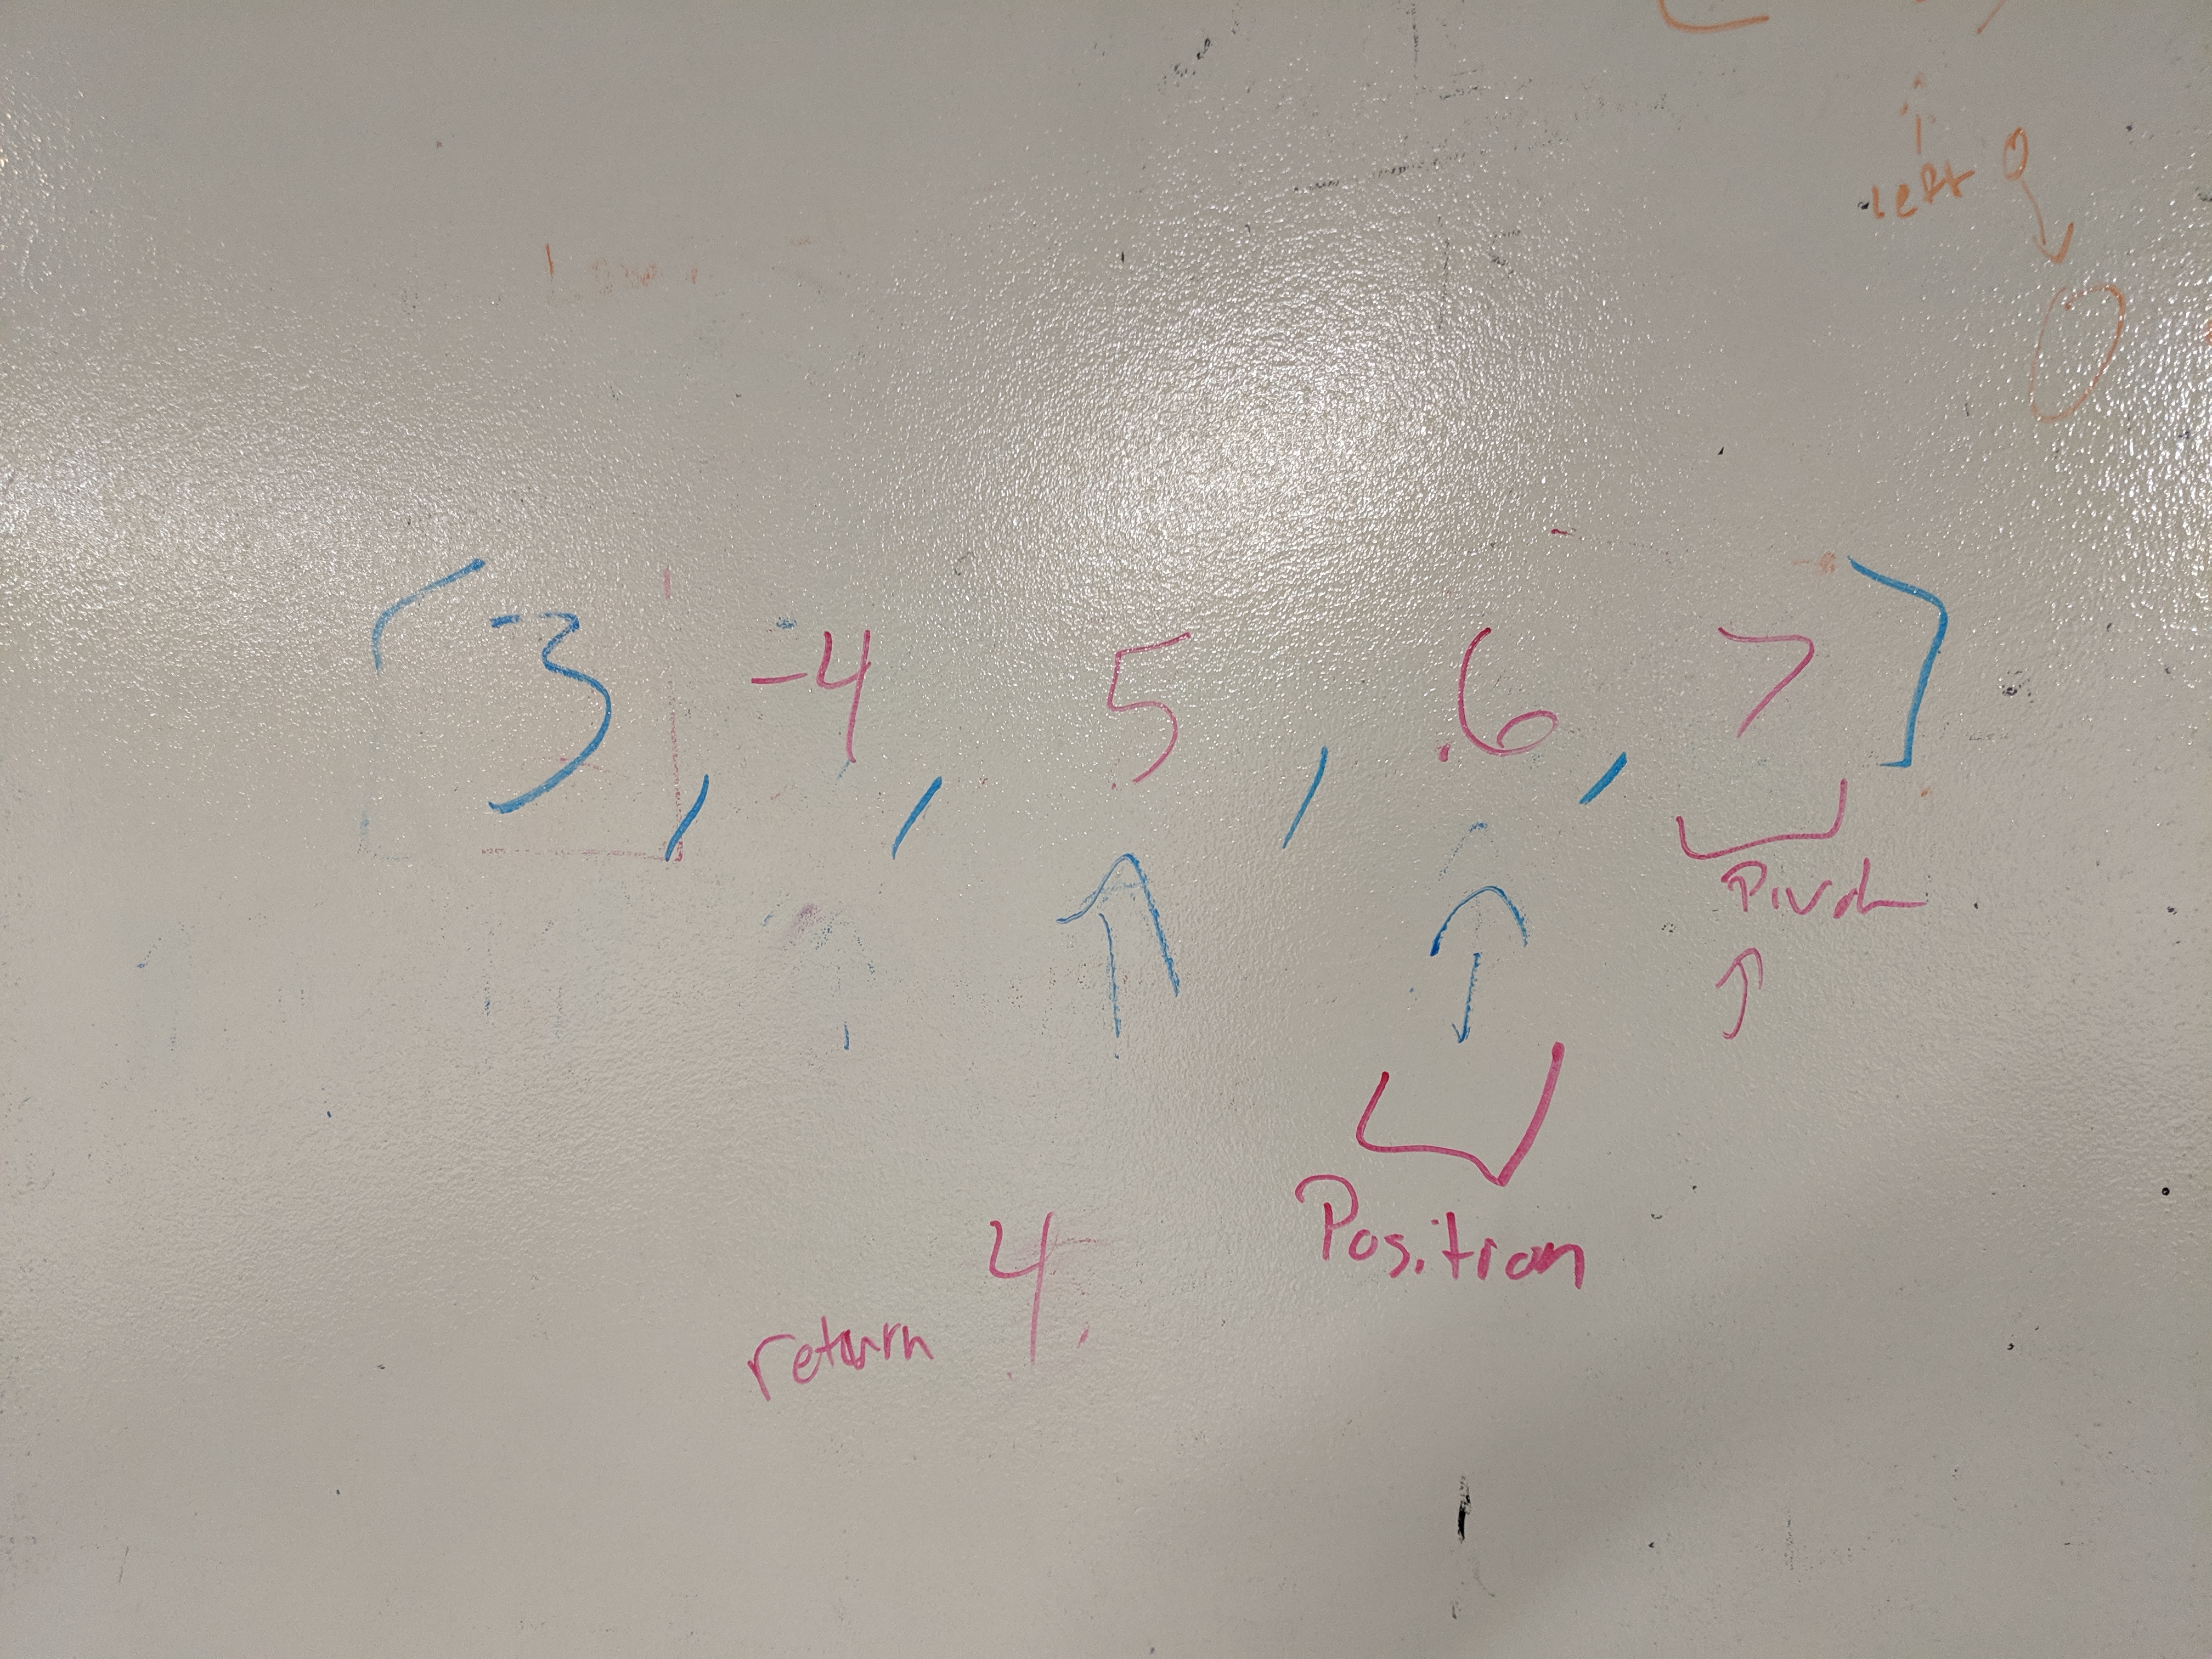 left
[3, -4, 5, .6, 7]
Pivot
Position
return 4.